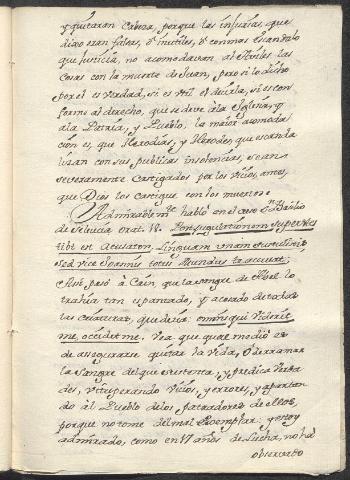 y quitaran Cabeza, porque las infurias, que
dixo eran falsas, ò inutiles, ò con mas Escandalo
que Justicia, no acomodavan al las
Cosas con la muerte de Juan, pero si lo dicho
por el es verdad, si es util el decirla, si es con
forme al derecho, que se deve à la Iglesia, y
à la Patria, y Pueblo, la maior acomoda
cion es, que Herodias, y Herodes, que escanda
lizan con sus publicas insolencias, sean
severamente Castigados por los vicios, antes,
que Dios los castigue con los muertos.
Admirablemte hablò en el caso Sn Basilio
de Seleucia orat. 18. Post jugulationem superstes
tibi est Accusator, Linguam unam
sed vice Joannis totus Mundus te accusat;
Assi pasò à Cain, que la sangre de Abel lo
trahia tan espantado, y acosado de todas
las criaturas, que decia: omnis qui viderit
me, occidet me. Vea que qual medio es
de assegurarse quitar la vida, ò derramar
la sangre del que sustenta, y predica verda
des, vituperando vicios, y errores, y apartan
do al Pueblo de los patradores de ellos,
porque no tome del mal Exemplar: y estoy
admirado, como en 17 años de Lucha, no ha
observado